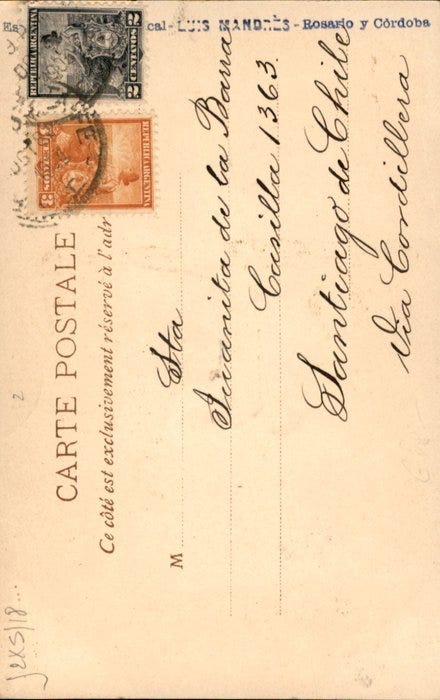 cal - LUIS MANDRÈS - Rosario y Córdoba
REPUBLICA ARGENTINA
2 CENTAVOS 2
REPUBLICA ARGENTINA
3 CENTAVOS 3
CARTE POSTALE
Ce côté est exclusivement réservé à l'adr
M
Sta
Juanita de la Barra
Casilla 1363.
Santiago de Chile
Via Cordillera
2